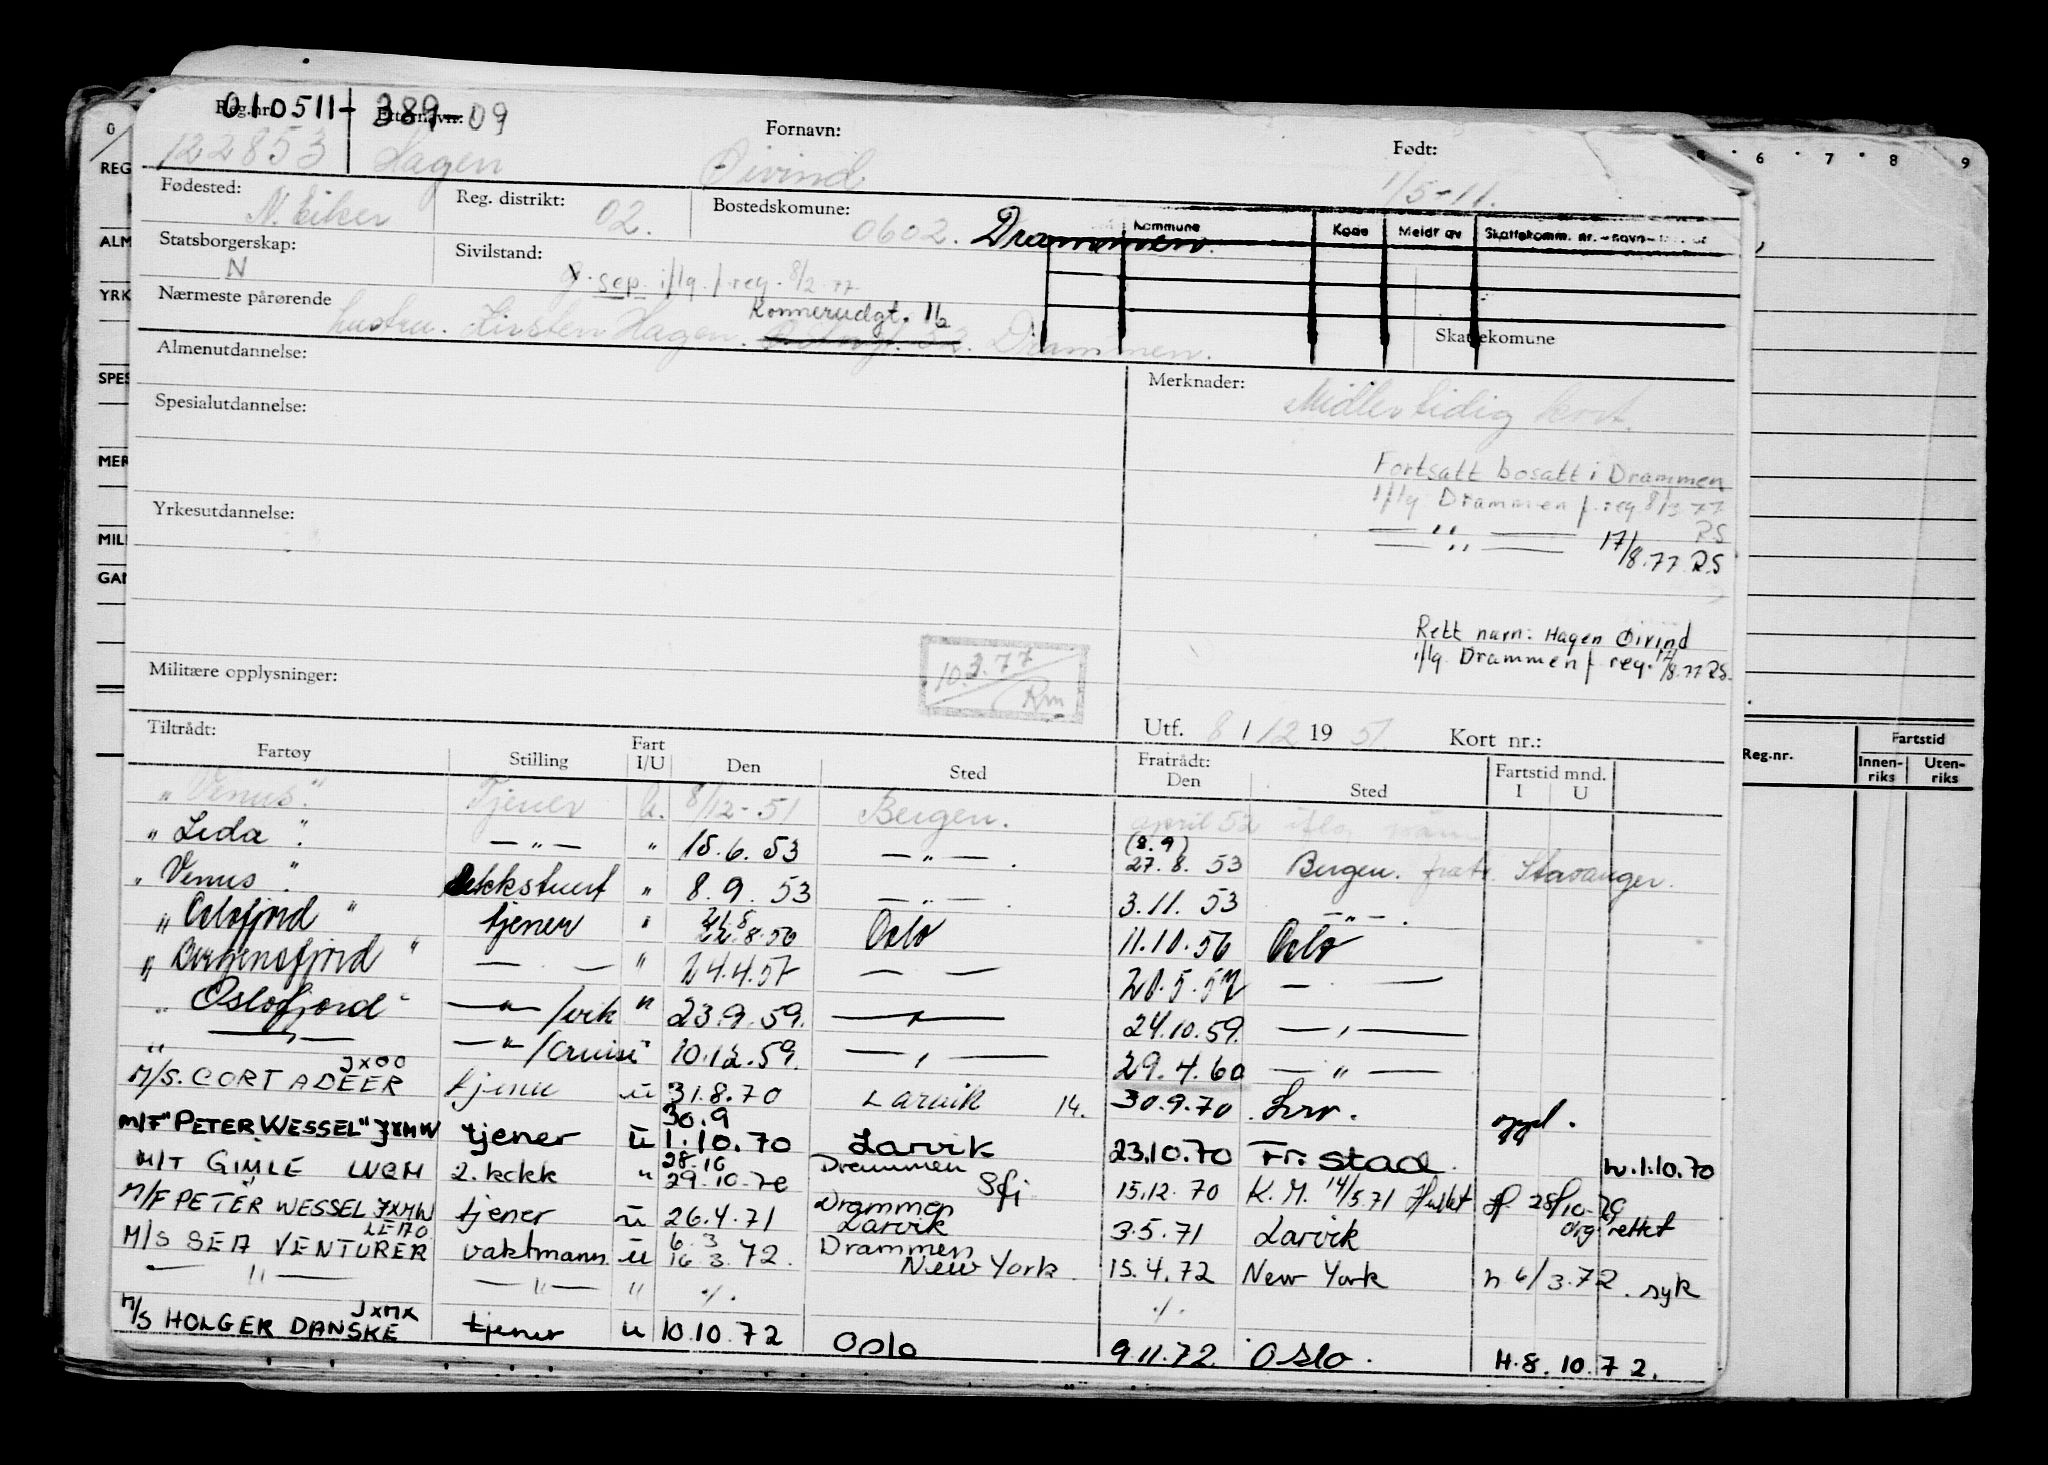 Reg.nr. 010511- 389-09 Etternavn: Fornavn: Født:
122853 Hagen Øivind 1/5-11.
Fødested: N. Eiker Reg. distrikt: 02. Bostedskomune: 0602. Drammen.
Kommune Kode Meldt av Skattekomm. nr. - navn-
Statsborgerskap: N Sivilstand: g. sep. iflg. f.reg. 8/2.77
Nærmeste pårørende
Konnerudgt. 16
hustru. Kirsten Hagen. Drammen.
Skattekomune
Almenutdannelse:
Merknader: Midlertidig kort.
Spesialutdannelse:
Fortsatt bosatt i Drammen
iflg Drammen f.reg 8/3 77
RS
Yrkesutdannelse:
— " — 17/8.77 RS
Rett navn: Hagen Øivind
iflg. Drammen f. reg. 17/8.77 RS.
10.3.77
Rm
Militære opplysninger:
Utf. 8 / 12 19 51 Kort nr.:
Tiltrådt: Fratrådt:
Fartøy Stilling Fart I/U Den Sted Den Sted Fartstid mnd. I U
"Venus" Tjener U. 8/12-51 Bergen. april 52
"Leda" — " — " 15.6.53 — " — . (8.9) 27.8.53 Bergen. fratr. Stavanger.
"Venus" dekkstuert " 8.9.53 — " — . 3.11.53 — " — .
"Oslofjord" tjener " 21.8 22.8.56 Oslo 11.10.56 Oslo
"Bergensfjord" — . — " 24.4.57 — — 20.5.57 — . —
"Oslofjord" — " —/vik " 23.9.59. — " — 24.10.59. — " —
" — " — — " —/Cruise " 10.12.59. — " — 29.4.60 — " —
JXOO
M/S. CORT ADEER tjener u 31.8.70 Larvik 14. 30.9.70 Lrv.
M/F "PETER WESSEL" JXMW tjener u 30.9 1.10.70 Larvik 23.10.70 Fr.stad h.1.10.70
M/T GIMLE 2. kokk " 28.10 29.10.70 Drammen Sfj 15.12.70 K.M. 14/5.71 28/10-70
M/F PETER WESSEL JXMW tjener u 26.4.71 Drammen Larvik 3.5.71 Larvik rettet
LEITO
M/S SEA VENTURER vaktmann u 6.3 16.3.72. Drammen New York. 15.4.72 New York h 6/3.72. syk
— " — — " — " ./. ./.
JXMX
M/S HOLGER DANSKE tjener u 10.10.72 Oslo 9.11.72 Oslo. H.8.10.72.
0
REG
ALM
YRK
SPES
MER
MILI
GAN
6 7 8 9
Reg.nr. Fartstid
Innen-riks Uten-riks